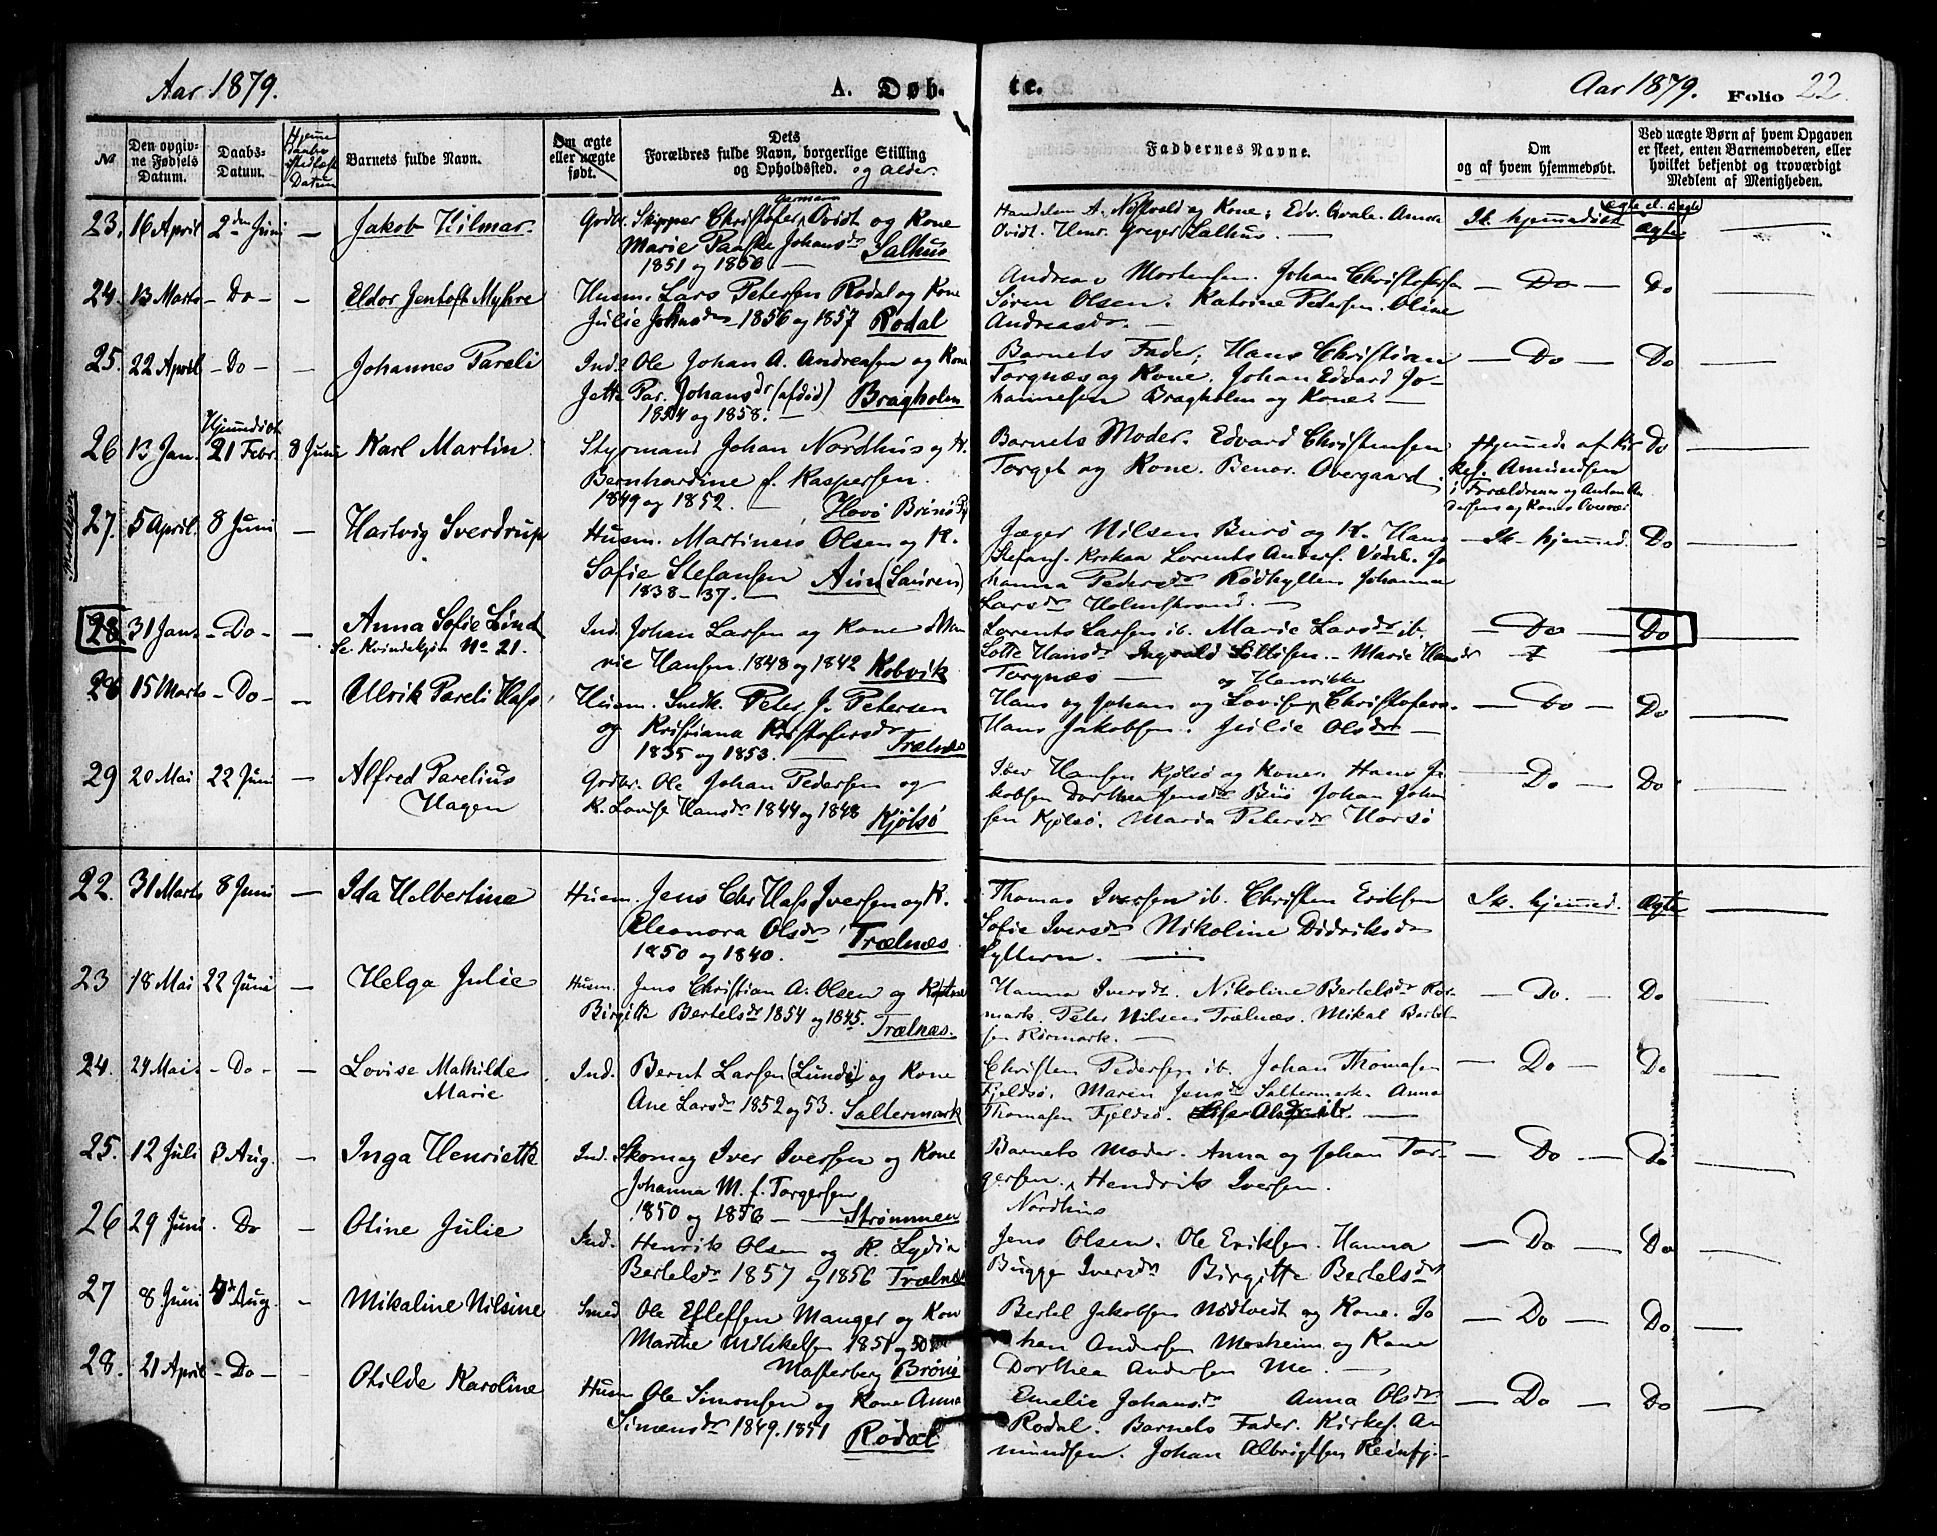 Aar 1879.
A. Døb-
te.
Aar 1879.
Folio 22.
No
Den opgivne Fødsels Datum.
Daabs-Datum.
Hjemme Daabs Stadfæst Datum
Barnets fulde Navn.
Om ægte eller uægte født.
Dets Forældres fulde Navn, borgerlige Stilling og Opholdssted. og alder.
Faddernes Navne.
Om og af hvem hjemmedøbt.
Ved uægte Børn af hvem Opgaven er skeet, enten Barnemoderen, eller hvilket bekjendt og troværdigt Medlem af Menigheden.
ægte el. uægte
Mandkjøn
23. 16 April 2den Juni — Jakob Hilmar. Gdbr. Skipper Christofer Germann Ovidt og Kone
Marie Paaske Johansdr Salhus
1851 og 1856 —
Handelsm A. Nystvold og Kone; Edv. Qvale. Anna
Ovidt. Henr. Greger Salhus. —
Ik. hjemmedøbt ægte
24. 13 Marts - Do - - Eldor Jentoft Myhre Husm. Lars Petersen Rodal og Kone
Julie Johnsdr 1856 og 1857 Rodal
Andreas Mortensen. Johan Christofersen
Søren Olsen. Katrine Petersen. Oline
Andreasdr. —
— Do — Do
25. 22 April - Do - - Johannes Pareli Ind. Ole Johan A. Andreasen og Kone
Jette Par. Johansdr (afdød) Bragholm
1854 og 1858. —
Barnets Fader; Hans Christian
Torgnæs og Kone. Johan Edvard Jo-
hannesen Bragholm og Kone. —
— Do — Do
26 13 Jan. Hjemmedøbt 21 Febr. 8 Juni Karl Martin Styrmand Johan Nordhus og K.
Bernhardine f. Kaspersen.
1849 og 1852. — Havø Brønø
Barnets Moder. Edvard Christensen
Torget og Kone. Benor. Overgaard.
Hjemmed. af Kir
kes. Amundsen
i Forældrenes og Anton An
dersens og Kones Overvær
Do
27. 5 April. 8 Juni — Hartvig Sverdrup Husm. Martinus Olsen og K.
Sofie Stefansen Aun (Sauren)
1838 - 37. —
Jæger Nilsen Burø og K. Hans
Stefans. Lorents Anders. Jo
hanna Pedersdr Rødhyllen Johanna
Larsdr Holmstrand. —
— Ik. hjemmed. Do
28 31 Jan. - Do - — Anna Sofie Lind Ind. Johan Larsen og Kone Ma
Se Kvindekjøn No 21.
rie Hansen. 1848 og 1842 Kobvik
Lorents Larsen ib. Marie Larsdr ib.
Lotte Hansdr Ingvald Sillesen. — Marie Hansdr
Torgnæs —
— Do — Do
28 15 Marts - Do - — Ulrik Pareli Hass Husm. Snedk. Peter J. Petersen
og Kristiana Kristofersdr
1835 og 1853. — Trælnæs
og Henrikke
Hans og Johan og Lovise Christofers.
Hans Jakobsen. Julie Olsdr —
— Do — Do
29 20 Mai 22 Juni — Alfred Parelius
Hagen
Gdbr. Ole Johan Pedersen og
K. Lovise Hansdr 1844 og 1848 Kjølsø
Iver Hansen Kjølsø og Kone. Hans Ja
kobsen Dorthea Jensdr Bus Johan Johan
sen Kjølsø. Maria Petersdr Horsø
— Do — Do
22. 31 Marts 8 Juni — Ida Helbertine Husm. Jens Chr Hass Iversen og K.
Eleonora Olsdr Trælnæs
1850 og 1840.
Thomas Iversen ib. Christen Eriksen
Sofie Iversdr Nikoline Didriksdr
Hyllern. —
Ik. hjemmed. ægte
23 18 Mai 22 Juni — Helga Julie Husm. Jens Christian A. Olsen og Kone
Birgitte Bertelsdr 1854 og 1845. Trælnæs.
Hanna Iversdr. Nikoline Bertelsdr Rør-
mark. Peter Nilsen Trælnæs. Mikal Bertel-
sen Rørmark. —
— Do. — Do
24. 24 Mai - Do - — Lovise Mathilde
Marie
Ind. Bernt Larsen (Lund) og Kone
Ane Larsdr 1852 og 53. Saltermark
Christen Pedersen ib. Johan Thomasen
Fjeldsø. Maren Jensdr Saltermark. Anna
Thomasen Fjeldsø. —
— Do — Do
25. 12 Juli 3 Aug. — Inga Henriette Ind. Skomag Iver Iversen og Kone
Johanna M. f. Torgersen
1850 og 1856 — Strømmen
Barnets Moder. Anna og Johan Tor-
gersen. Hendrik Iversen.
Nordhus
— Do — Do
26 29 Juni. Do — Oline Julie Ind. Henrik Olsen og K. Lydia
Bertelsdr 1857 og 1856 Trælnæs
Jens Olsen. Ole Eriksen. Hanna
Bugge Iversdr Birgitte Bertelsdr
— Do — Do
27 8 Juni Aug. - Mikaline Nilsine Smed Ole Eflefsen Manger og Kon
Marthe Mikkelsen 1851 og 50
Masterberg Brønø
Bertel Jakobsen Nødtvedt og Kone. Jo
han Andersen Mosheim og Kone
Dorthea Andersen Mo. —
— Do — Do
28. 21 April - Do - Otilde Karoline Husm Ole Simonsen og Kone Anna
Simonsdr 1849. 1851 Rodal
Emelie Johansdr Anna Olsdr
Rodal. Barnets Fader. Kirkes. A-
mundsen. Johan Albrigtsen Reinfj.
— Do — Do